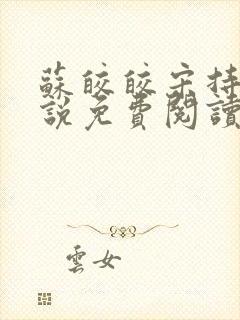 蘇皎皎宋持
說免費閱讀
雲女